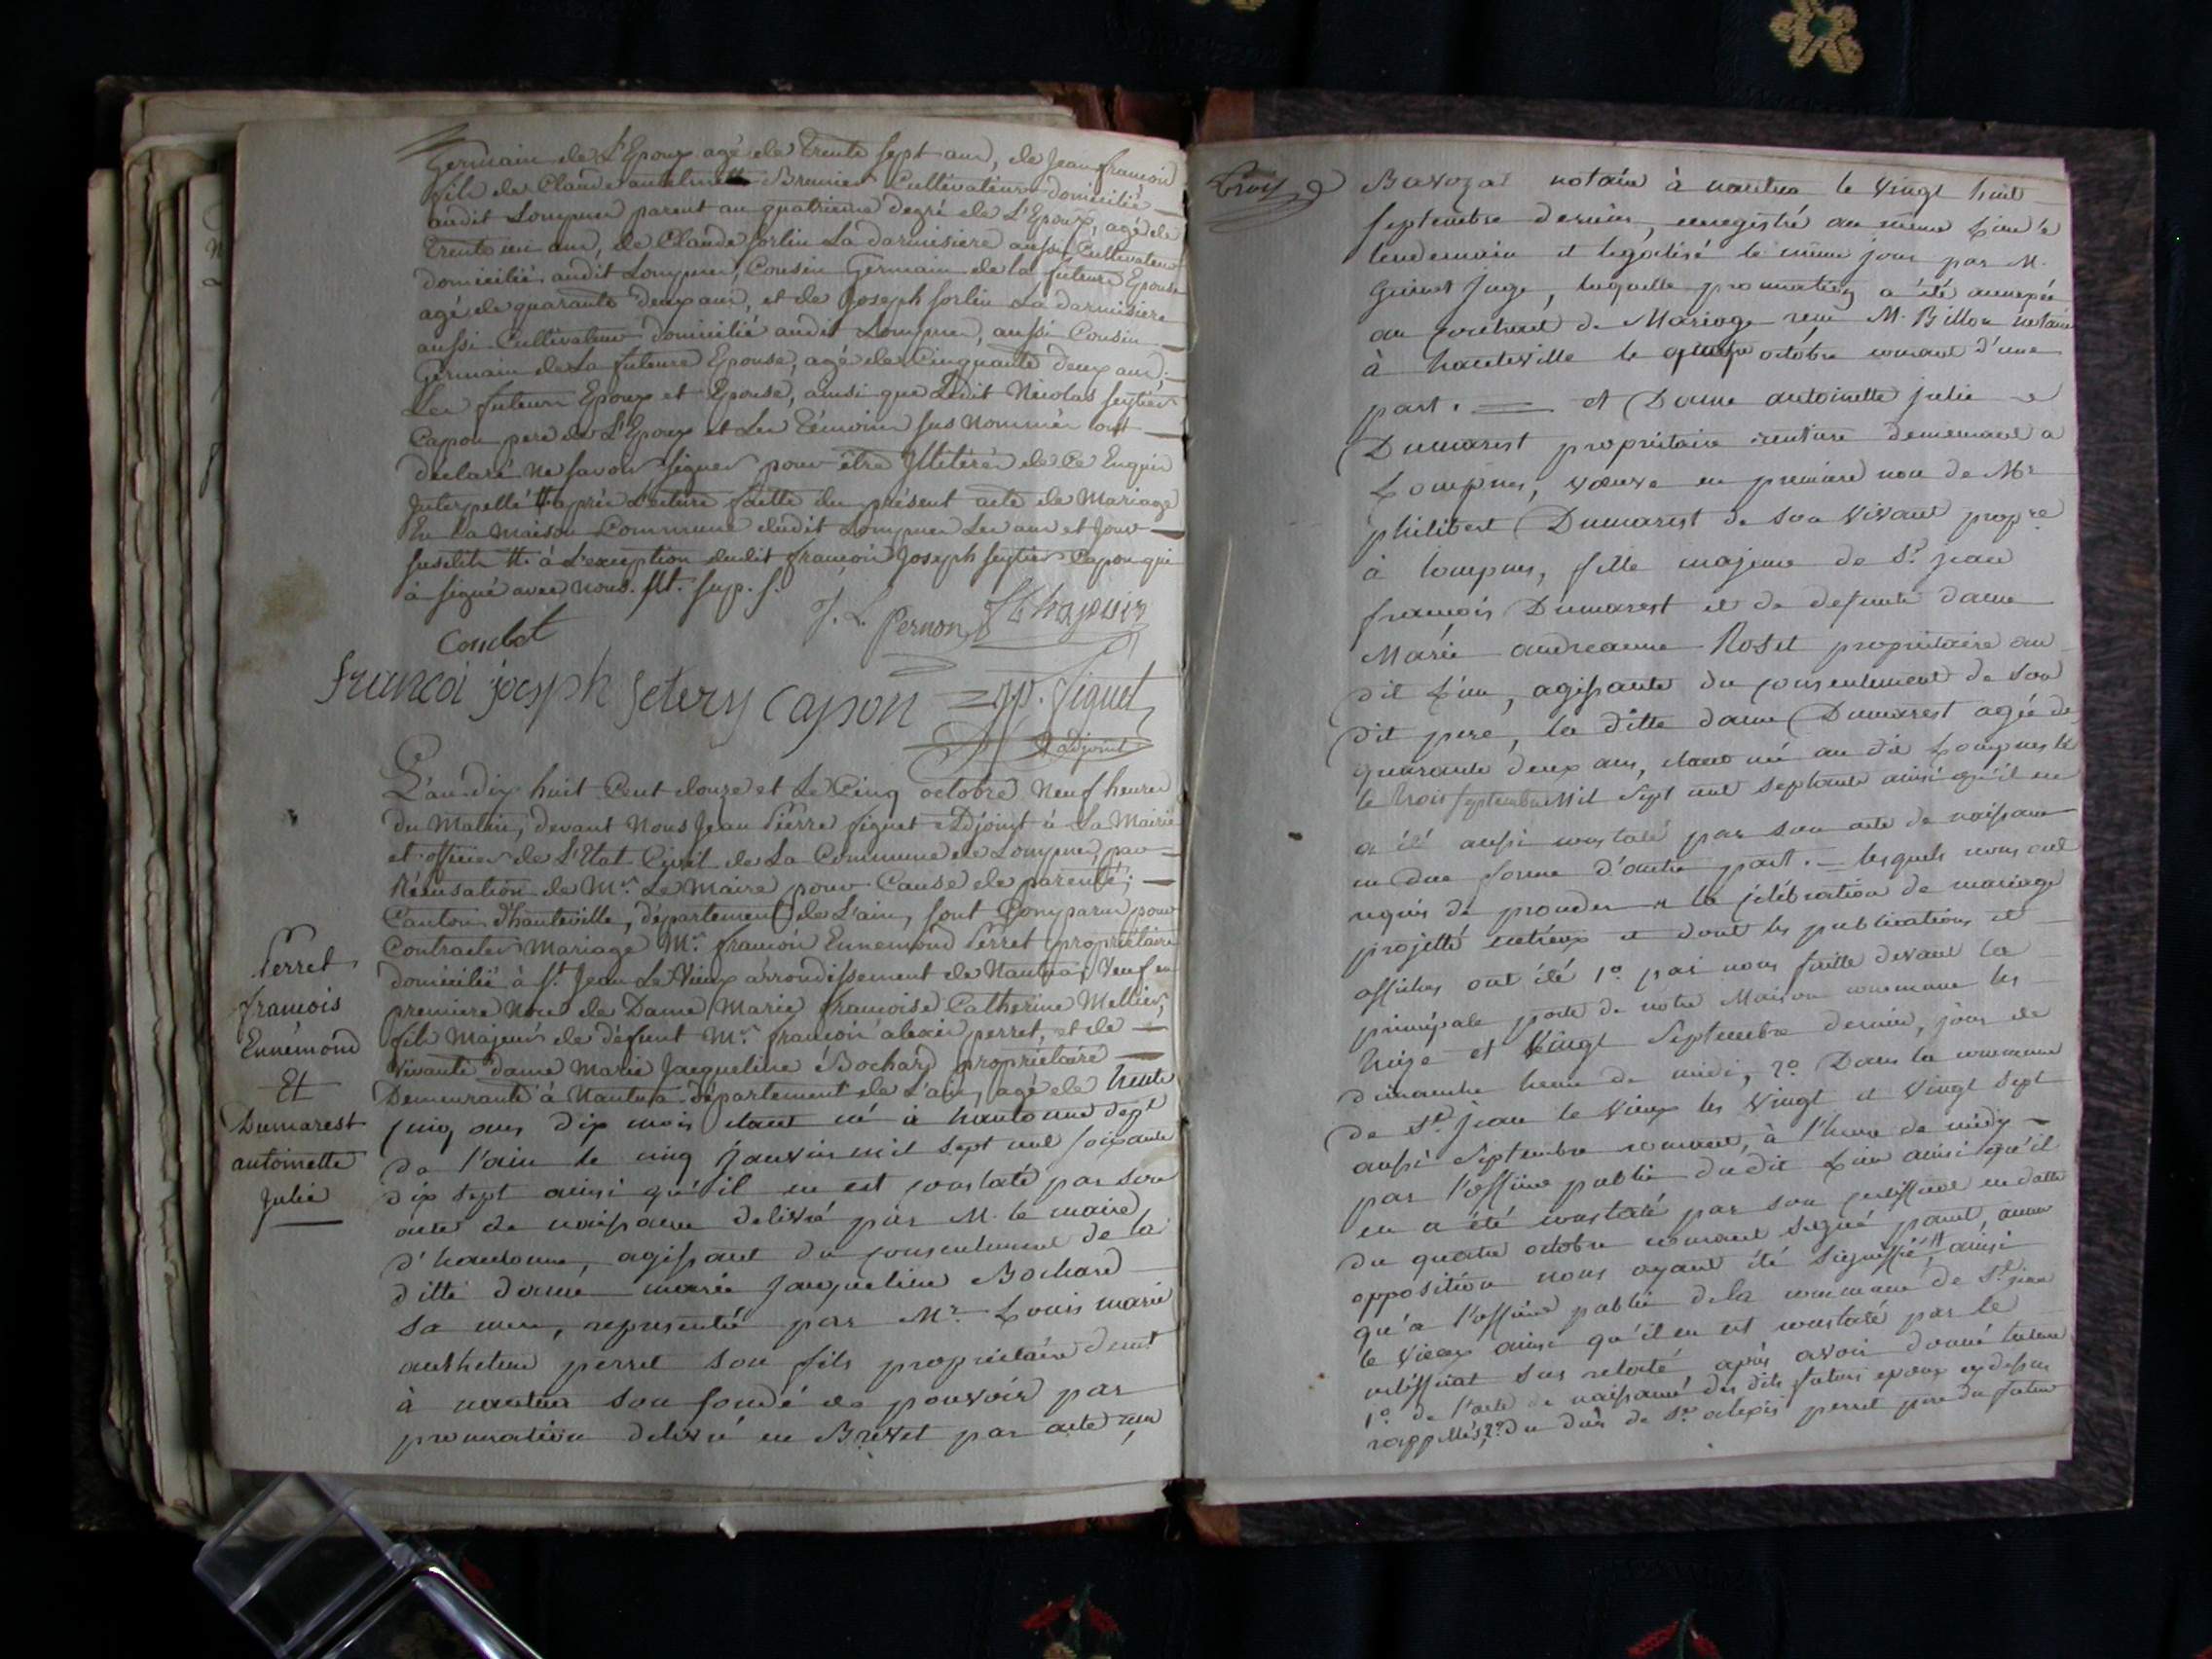 Germain de L'Epoux agé de trente sept ans, de Jean françois
fils de Claude anthelmette Brunier Cultivateur domicilié
audit Lompnes parent au quatrieme degré de L'Epoux, agé de
trente un ans, de Claude Sorlin La darnisiere aussi Cultivateur
domicilié audit Lompnes, Cousin Germain de la future Epouse
agé de quarante deux ans, et de Joseph Sorlin La darnisiere
aussi Cultivateur domicilié audit Lompnes, aussi Cousin
Germain de La future Epouse, agé de Cinquante deux ans;
Les futurs Epoux et Epouse, ainsi que Ledit Nicolas
Capon pere de L'Epoux et Les témoins sus Nommés ont
declaré Ne Savoir Signer pour être Illetérés de Ce Enquis
Interpellé # après Lecture faitte du présent acte de Mariage
En La Maison Commune dudit Lompnes Les an et Jour
susdits #. à L'exception dudit françois Joseph Capon qui
à signé avec nous. #
Combet J. L. Pernon Chapuis
francoi joseph setery capon JP. figuet
adjoint
L'an dix huit Cent douze et Le Cinq octobre Neuf heures
du Matin, devant Nous Jean Pierre figuet adjoint à La Mairie
et officier de L'Etat Civil de La Commune de Lompnes, par
Récusation de Mr. Le Maire pour Cause de parenté;
Canton d'hauteville, département de L'ain, sont Comparus pour
Contracter Mariage Mr. françois Ennemond Perret propriétaire
domicilié à St. Jean Le Vieux arrondissement de Nantua, Veuf en
premiere Noce de Dame Marie françoise Catherine Mellier,
fils Majeur de défunt Mr. françois alexis perret, et de
Vivante dame Marie Jacqueline Bochard propriétaire
Demeurante à Nantua département de L'ain, agé de trente
cinq ans dix mois etant né à hautonne dept
de l'ain le cinq Janvier mil sept cent soixante
dix sept ainsi qu'il en est constaté par son
acte de naissance delivré par M. le maire
d'hautonne, agissant du consentement de la
ditte dame marie jacqueline Bochard
sa mere, representée par Mr. Louis marie
anthelme perret son fils propriétaire demt
à nantua son fondé de pouvoir par
procuration delivré en Brevet par acte reçu
Perret
françois
Ennemond
Et
Dumarest
antoinette
Julie
Trois
notaire à nantua le vingt huit
septembre dernier, enregistré au même Lieu le
lendemain et légalisé le même jour par M.
Guinet Juge, laquelle procuration a été annexée
au contrat de Mariage reçu M. Billon notaire
à hauteville le octobre courant d'une
part. — et Dame antoinette julie
Dumarest propriétaire rentiere demeurant a
Lompnes, veuve en premiere noce de Mr
philibert Dumarest de son vivant propre
à lompnes, fille majeure de Sr. jean
françois Dumarest et de defunte dame
Marie andreanne Roset propriétaire au
dit Lieu, agissante du consentement de son
dit pere, la ditte dame Dumarest agée de
quarante deux ans, etant né au dit Lompnes le
le trois septembre Mil sept cent septante ainsi qu'il en
a été aussi constaté par son acte de naissance
en due forme d'autre part. — lesquels nous ont
requis de proceder a la célébration de mariage
projetté entreux et dont les publications et
affiches ont été 1°. par nous faitte devant la
principale porte de notre Maison commune les
treize et Vingt Septembre dernier, jours de
dimanche heure de midi, 2°. Dans la commune
de St. jean le Vieux les vingt et vingt sept
aussi Septembre courant, à l'heure de midy
par l'officier public du dit Lieu ainsi qu'il
en a été constaté par son certificat en datte
du quatre octobre courant signé aucune
opposition nous ayant été signiffié, # ainsi
qu'a l'officier public de la commune de St. jean
le vieux ainsi qu'il en est constaté par le
certifficat sus relaté, après avoir donné lecture
1°. de l'acte de naissance des dits futurs epoux cy dessus
rappellés, 2°. du decès de Sr. alexis perret pere du futur